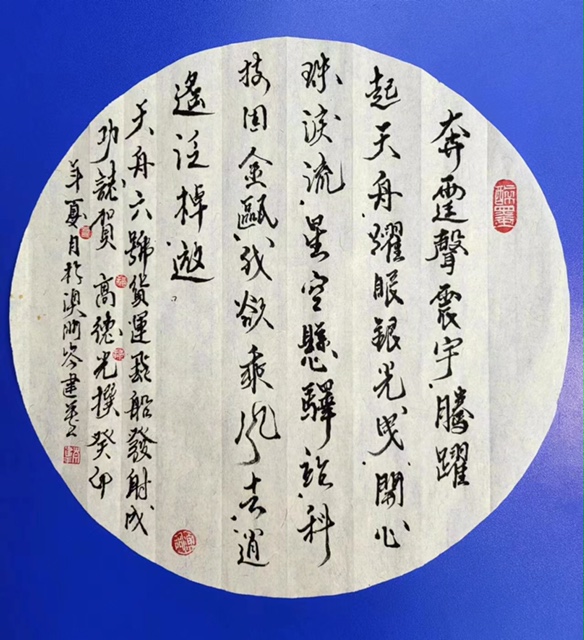 奔霆聲震宇騰躍
起天舟耀眼銀光曳開心
珠淚流星空懸驛站科
技固金甌我欲乘風去逍
遙泛棹遨。
天舟六號貨運飛船發射成
功誌賀 高德光撰 癸卯
年夏月於澳洲岑建